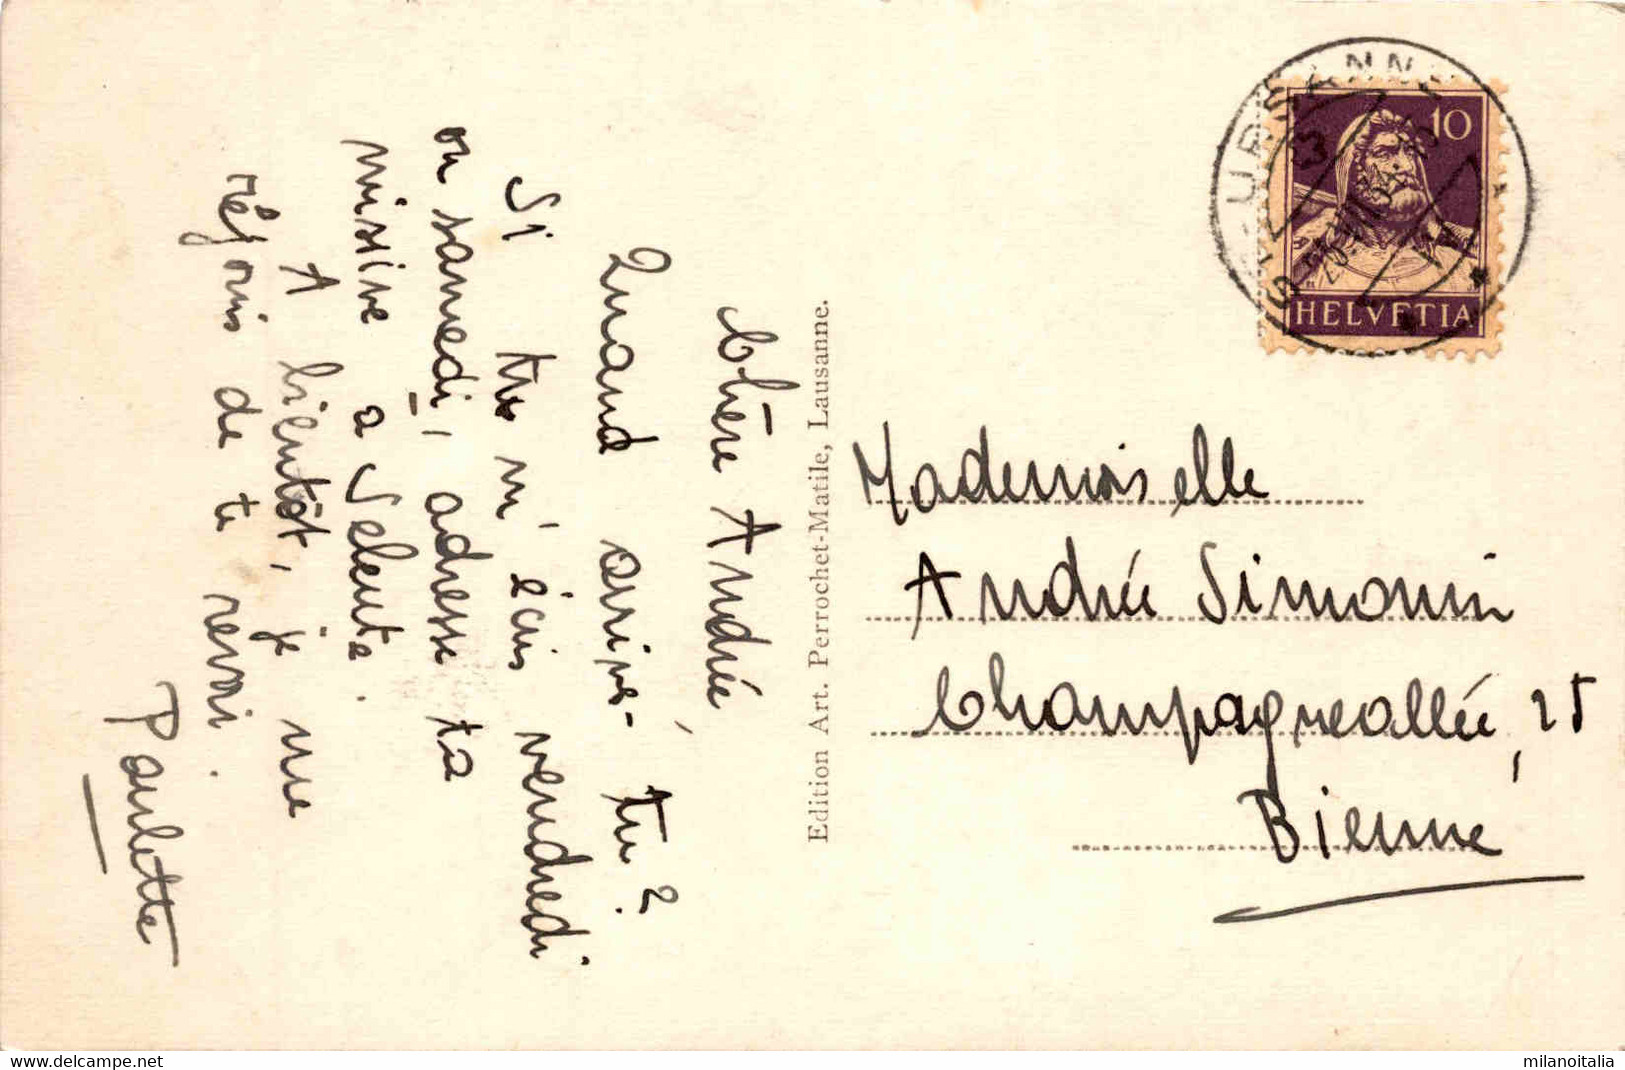 Chère Andrée,
Quand arrives-tu?
Si tu m'écris vendredi
ou samedi, adresse ta
missive à Seleute.
A bientôt, je me
réjouis de te revoir.
Paulette
Edition Art. Perrochet-Matile, Lausanne.
10
HELVETIA
ST. URSANNE
Mademoiselle
Andrée Simonin
Champagneallée, 25
Bienne
milanoitalia